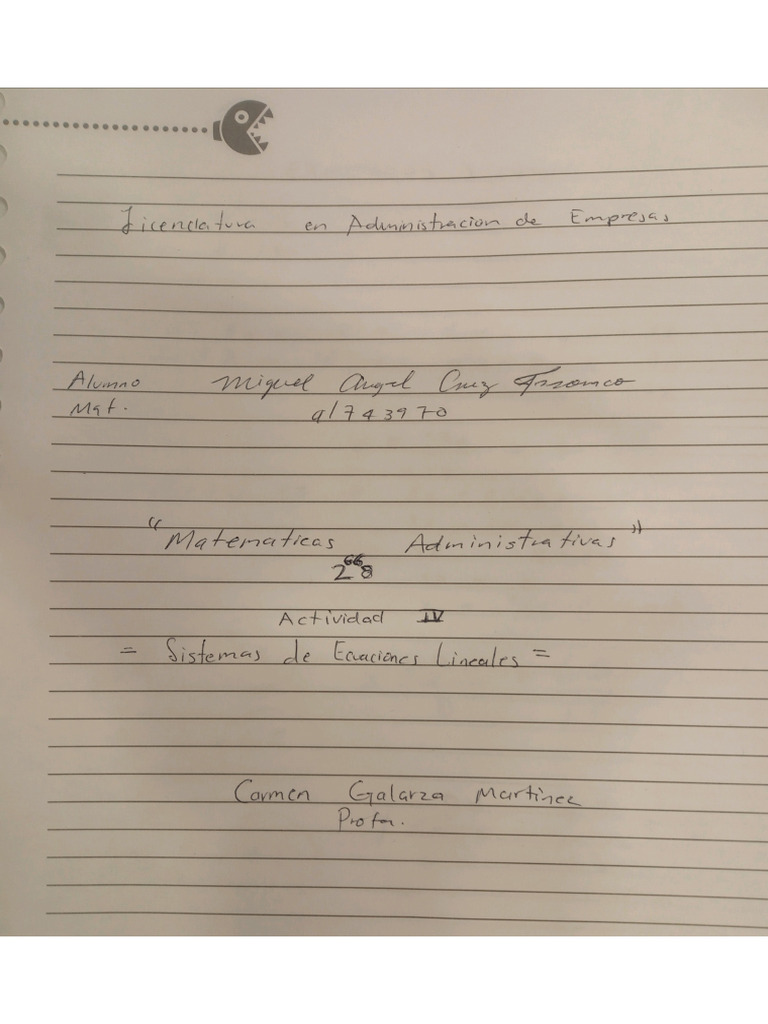 Licenciatura en Administracion de Empresas
Alumno Miguel Angel Cruz
Mat. al743970
"Matematicas Administrativas"
Actividad IV
= Sistemas de Ecuaciones Lineales =
Carmen Galarza Martinez
Profa.